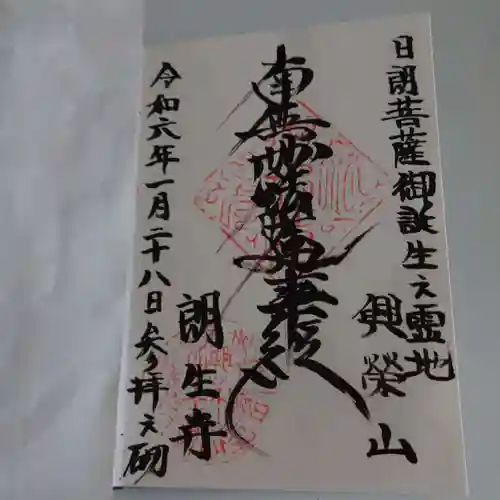 日朗菩薩御誕生之霊地
興榮山
南無妙法蓮華経
朗生寺
令和六年一月二十八日参拝之砌